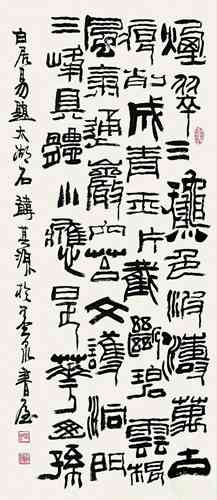 煙翠三龝色波濤萬古
痕削成青玉片截斷碧雲根
風氣通巖穴苔文護洞門
三峰具體小應是華山孫
白居易題太湖石 其源於書屋